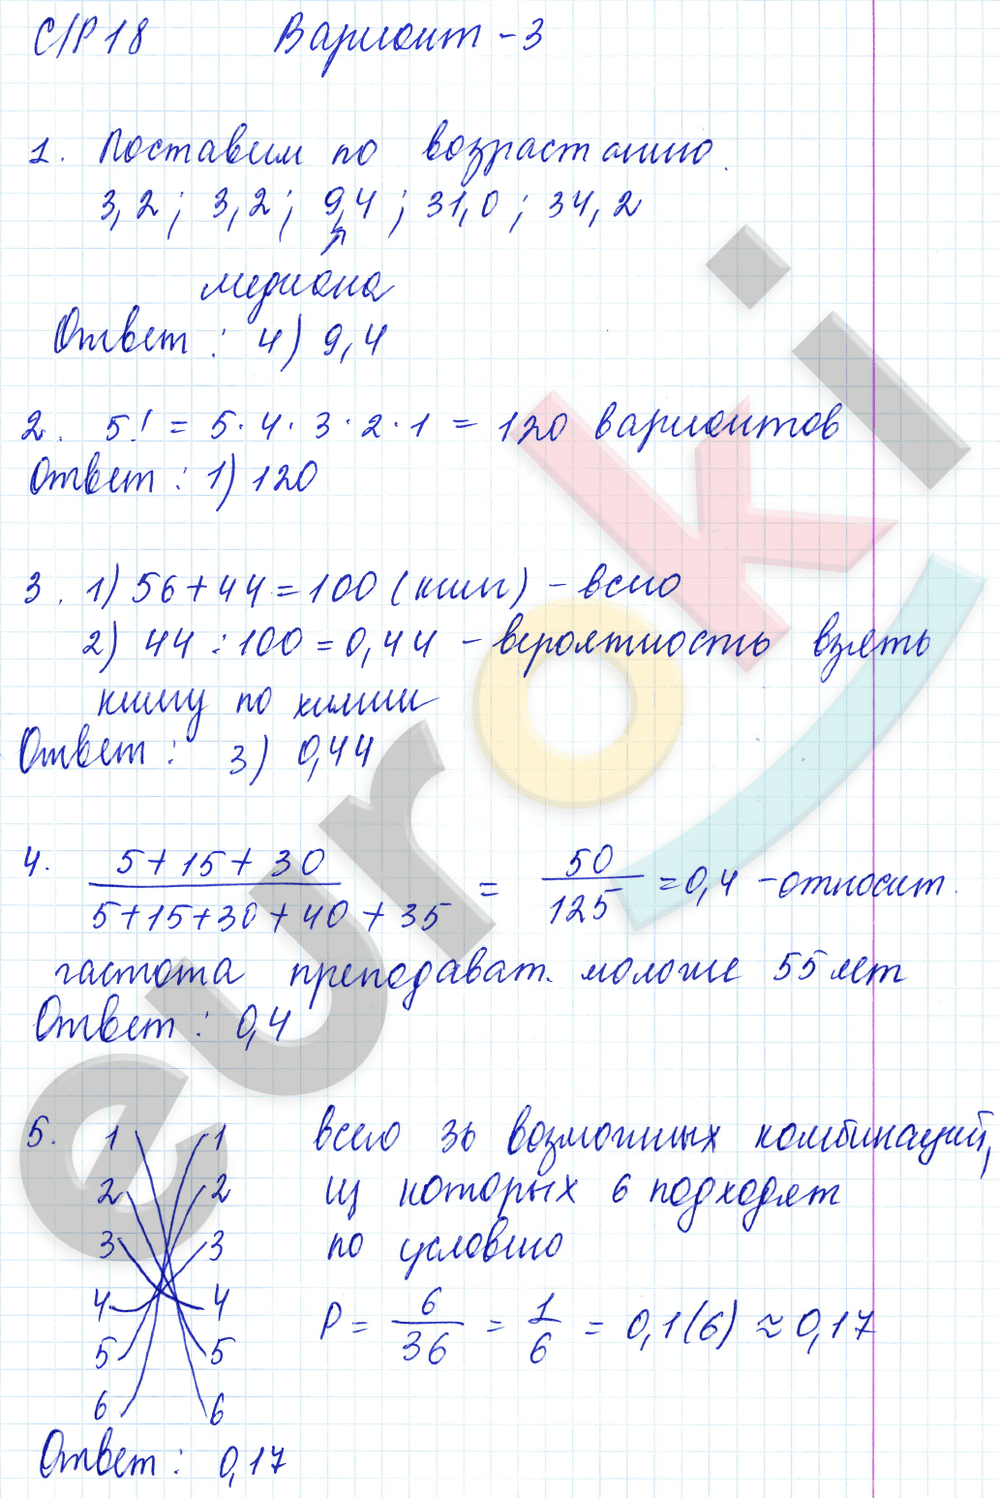 С/Р 18 Вариант - 3
1. Поставим по возрастанию.
3,2 ; 3,2 ; 9,4 ; 31,0 ; 34,2
медиана
Ответ : 4) 9,4
2. 5! = 5 · 4 · 3 · 2 · 1 = 120 вариантов
Ответ : 1) 120
3. 1) 56 + 44 = 100 (книг) - всего
2) 44 : 100 = 0,44 - вероятность взять
книгу по химии
Ответ : 3) 0,44
4. (5 + 15 + 30) / (5 + 15 + 30 + 40 + 35) = 50/125 = 0,4 - относит.
частота преподават. моложе 55 лет
Ответ : 0,4
5. 1 1 всего 36 возможных комбинаций,
2 2 из которых 6 подходят
3 3 по условию
4 4 P = 6/36 = 1/6 = 0,1(6) ≈ 0,17
5 5
6 6
Ответ : 0,17
euroki